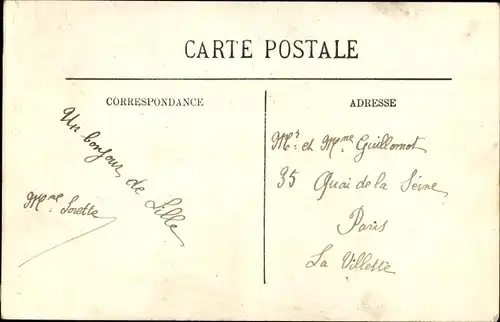 CARTE POSTALE
CORRESPONDANCE
Un bonjour de Lille
Mme Sorette
ADRESSE
Mr et Mme Guillomot
35 Quai de la Seine
Paris
La Villette